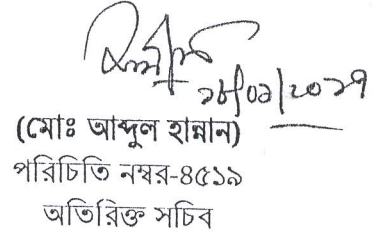 ১৮/০১/২০১৭
(মোঃ আব্দুল হান্নান)
পরিচিতি নম্বর-৪৫১৯
অতিরিক্ত সচিব